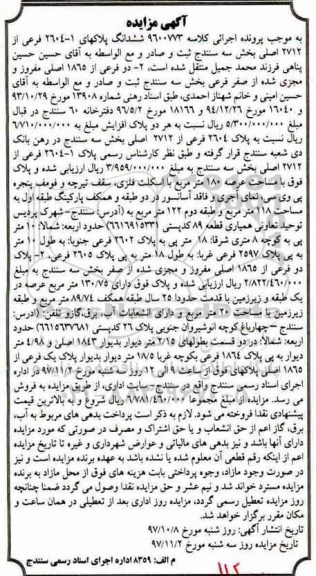 آگهی مزایده
به موجب پرونده اجرائی کلاسه ۹۶۰۰۷۷۳ ششدانگ پلاکهای ۱-۲۶۰۴ فرعی از
۲۷۱۲ اصلی بخش سه سنندج ثبت و صادر و مع الواسطه به آقای حسین حسین
پناهی فرزند محمد جمیل منتقل شده است، ۲- دو فرعی از ۱۸۶۵ اصلی مفروز و
مجزی شده از صفر فرعی بخش سه سنندج ثبت و صادر و مع الواسطه به آقای
حسین امینی و خانم شهناز احمدی، طبق اسناد رهنی شماره ۱۳۹۰۸ مورخ ۹۳/۱۰/۲۹
و ۱۶۰۴۰ مورخ ۹۴/۱۲/۲۶ و ۱۸۱۶۶ مورخ ۹۶/۵/۲ دفترخانه ۶۰ سنندج در قبال
مبلغ ۵/۳۰۰/۰۰۰/۰۰۰ ریال نسبت به هر دو پلاک افزایش مبلغ به ۶/۷۱۰/۰۰۰/۰۰۰
ریال نسبت به پلاک ۲۶۰۴ فرعی از ۲۷۱۲ اصلی بخش سه سنندج در رهن بانک
دی شعبه سنندج قرار گرفته و طبق نظر کارشناس رسمی پلاک ۱-۲۶۰۴ فرعی از
۲۷۱۲ اصلی بخش سه سنندج به مبلغ ۳/۹۵۹/۰۰۰/۰۰۰ ریال ارزیابی شده و پلاک
فوق با مساحت متر مربع با اسکلت فلزی، سقف تیرچه و فومف، پنجره
پی وی سی نمای آجری فاقد آسانسور در دو طبقه و همکف پارکینگ طبقه اول به
مساحت ۱۱۸ متر مربع و طبقه دوم ۱۲۲ متر مربع به (آدرس: سنندج-شهرک پردیس
توحید تعاونی همیاری قطعه ۸۹ کدپستی ۶۶۱۶۹۱۵۳۳۱) حدود اربعه: شمالا: ۱۰ متر
پی به کوچه ۸ متری شرقا: ۱۸ متر پی به پلاک ۲۶۰۲ فرعی جنوبا: به طول ۱۰ متر
پی به پلاک ۲۵۹۷ فرعی غربا: به طول ۱۸ متر پی به پلاک ۲۶۰۵ فرعی ۲- پلاک
دو فرعی از ۱۸۶۵ اصلی مفروز و مجزی شده از صفر بخش سه سنندج به مبلغ
۲/۸۲۲/۴۶۰/۰۰۰ ریال ارزیابی شده و پلاک فوق دارای ۱۳۰/۷۵ متر مربع عرصه در
یک طبقه و زیرزمین با قدمت حدودا ۲۵ سال طبقه همکف ۸۹/۷۴ متر مربع و طبقه
زیرزمین با مساحت ۲۰ متر مربع و دارای انشعابات آب، برق، گاز و تلفن: (آدرس:
سنندج – چهارباغ کوچه انوشیروان جنوبی پلاک ۲۶ کدپستی ۶۶۱۵۶۳۷۶۸۱) حدود
اربعه: شمالا: در دو قسمت بطولهای ۲/۱۵ متر دیوار بدیوار ۱۸۴۳ اصلی و ۴/۹۸ متر
دیوار به پی پلاک ۱۸۶۴ فرعی بکوچه غربا ۱۸/۵ متر دیوار بدیوار پلاک یک فرعی از
۱۸۶۵ اصلی پلاکهای فوق از ساعت ۹ الی ۱۲ روز سه شنبه مورخ ۹۷/۱۱/۲ در اداره
اجرای اسناد رسمی سنندج واقع در سنندج سایت اداری، از طریق مزایده به فروش
می رسد. مزایده از مبلغ مجموعا ۶/۷۸۱/۴۶۰/۰۰۰ ریال شروع و به بالاترین قیمت
پیشنهادی نقدا فروخته می شود. لازم به ذکر است پرداخت بدهی های مربوط به آب،
برق، گاز اعم از حق انشعاب و یا حق اشتراک و مصرف در صورتی که مورد مزایده
دارای آنها باشد و نیز بدهی های مالیاتی و عوارض شهرداری و غیره تا تاریخ مزایده
اعم از اینکه رقم قطعی آن معلوم شده یا نشده باشد به عهده برنده مزایده است و نیز
در صورت وجود مازاد، وجوه پرداختی بابت هزینه های فوق از محل مازاد به برنده
مزایده مسترد خواهد شد و نیم عشر و حق مزایده نقدا وصول می گردد ضمنا چنانچه
روز مزایده تعطیل رسمی گردد، مزایده روز اداری بعد از تعطیلی در همان ساعت و
مکان مقرر برگزار خواهد شد.
تاریخ انتشار آگهی: روز شنبه مورخ ۹۷/۱۰/۸
تاریخ مزایده روز سه شنبه مورخ ۹۷/۱۱/۲
م الف: ۸۳۵۹ اداره اجرای اسناد رسمی سنندج